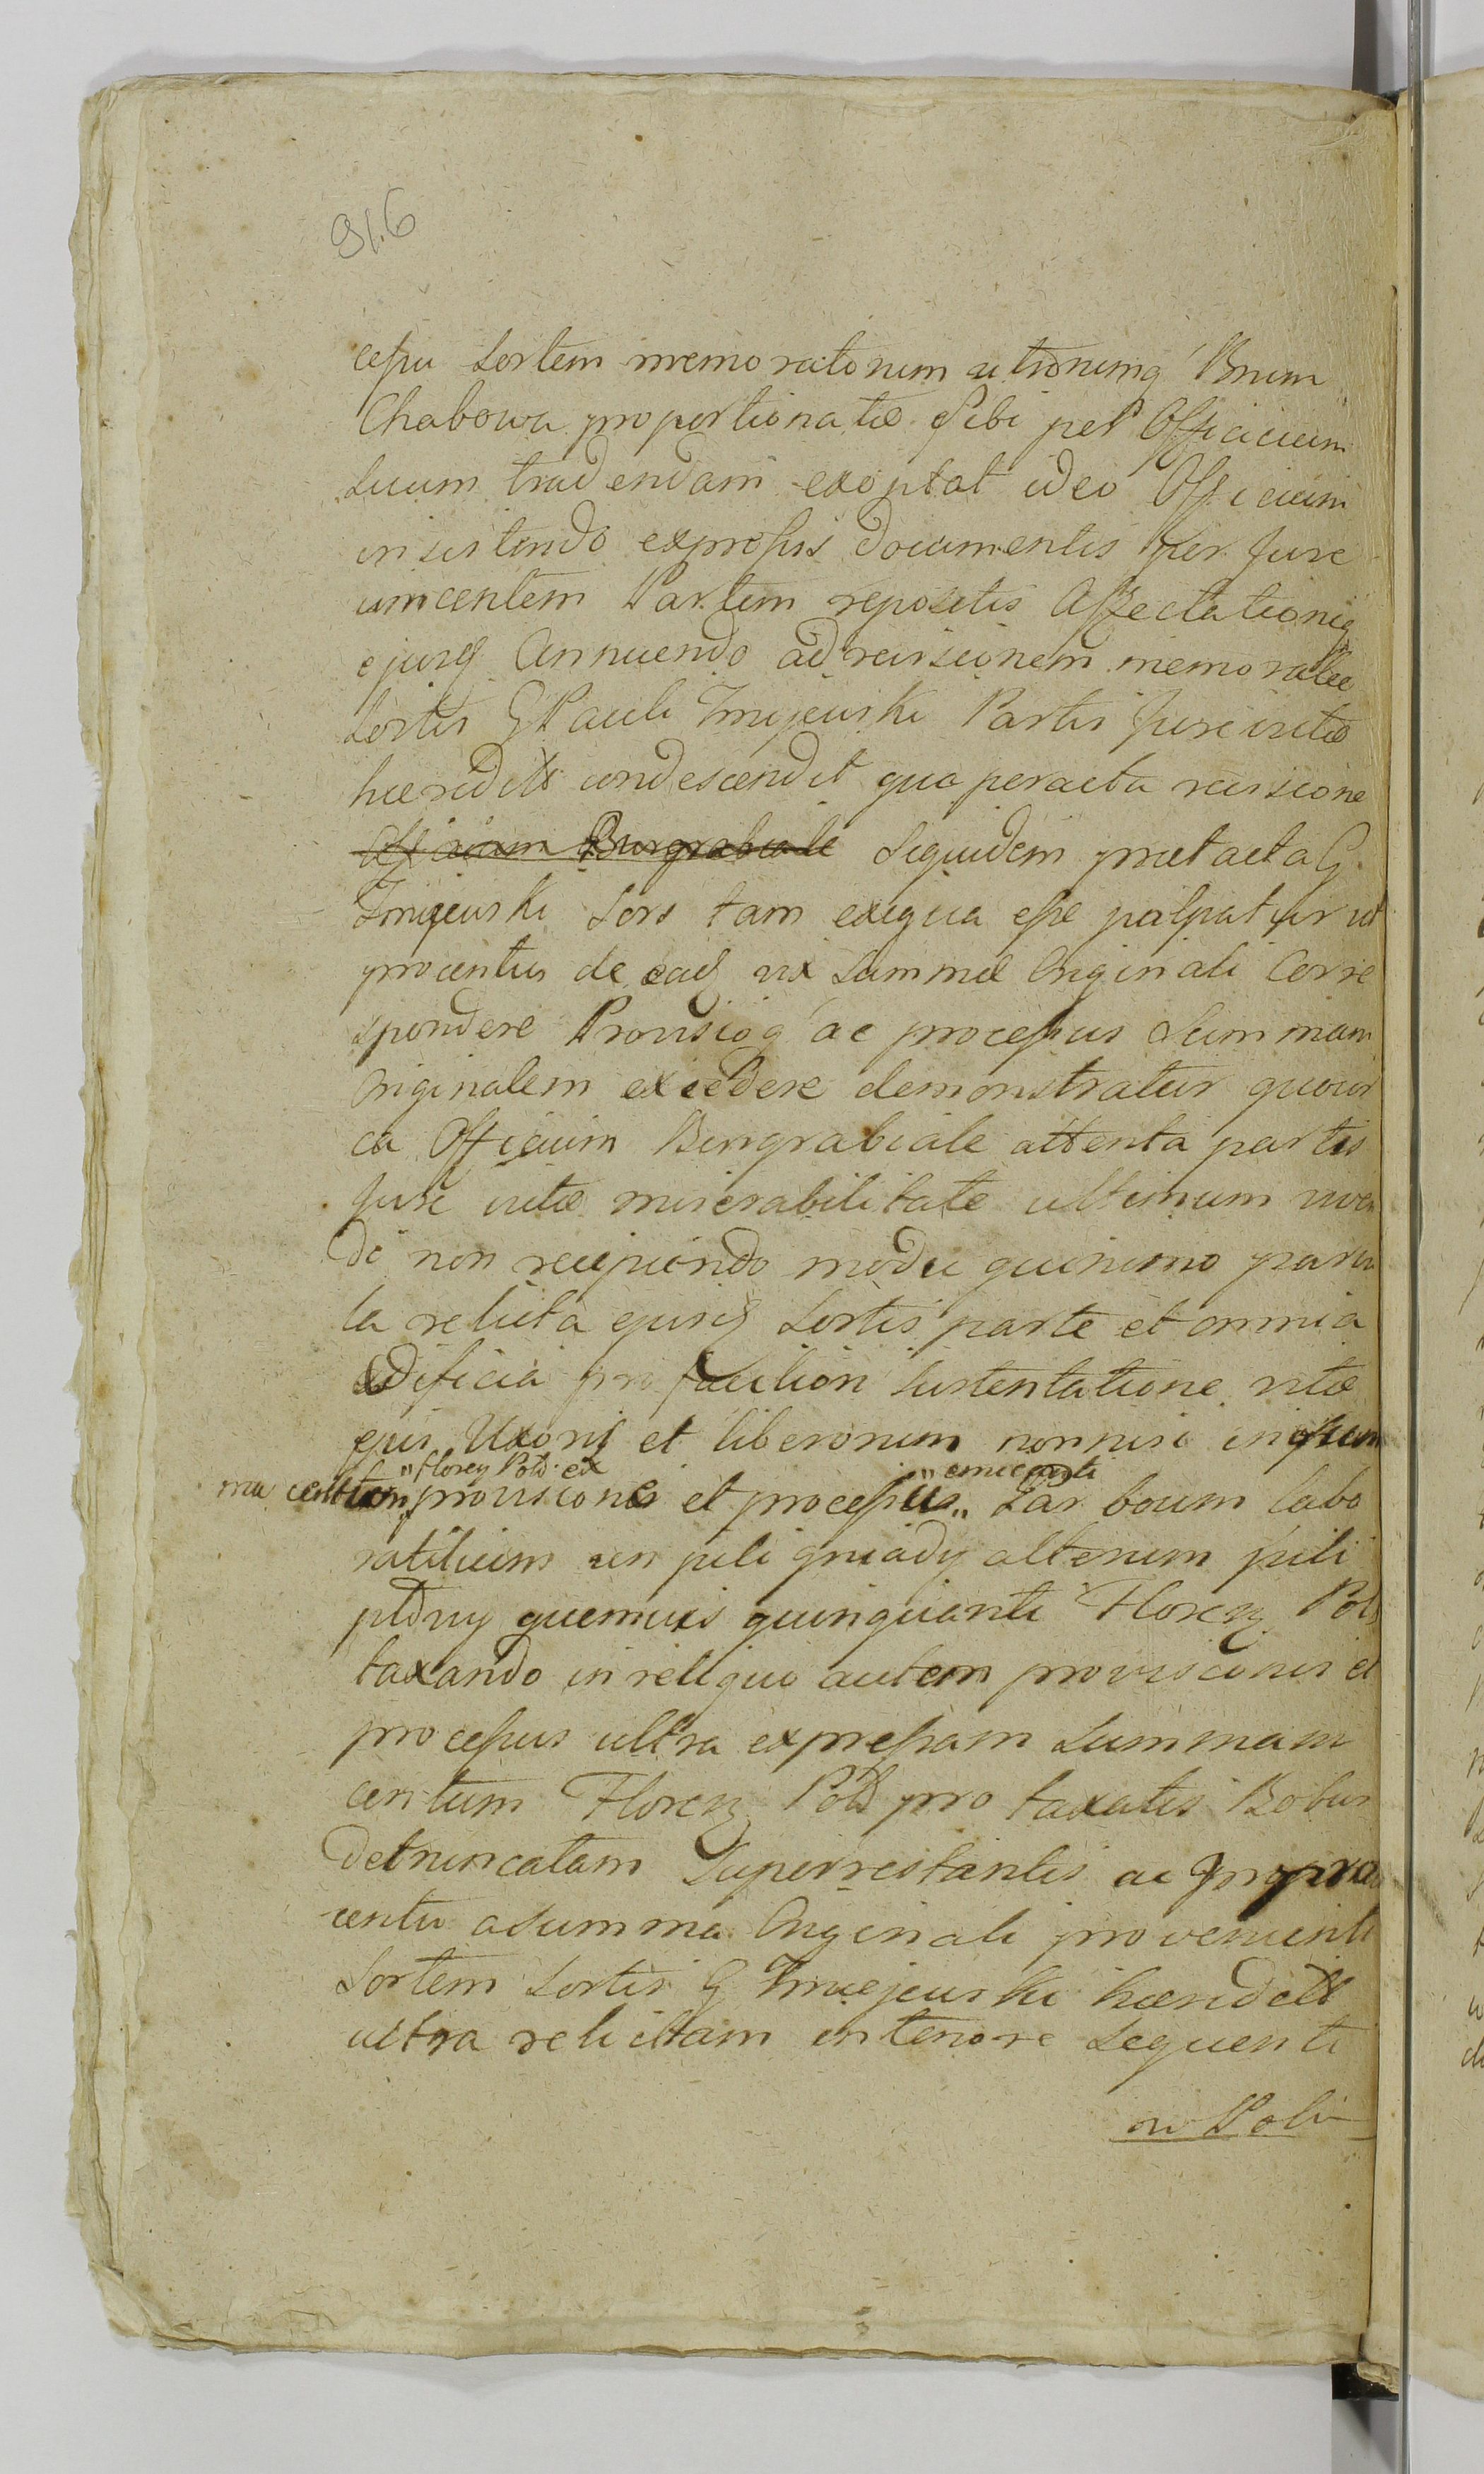 916
cessu Sortem memoratorum utrorumq Bnum
Chabowa proportionate Sibi per Officium
Suum tradendam exoptat ideo Officium
insistendo expressis documentis per Jure
vincentem Partem repositis Affectationiq
ejusd Annuendo ad revisionem memoratae
Sortis G Pauli Zmijewski Partis Jure victae
haeredit condescendit qua peracta revisione
Officium Burgrabiale Siquidem praetacta G
Zmijewski Sors tam exigua esse palpatur ut
procentus de ead vix Summae Originali Corre
spondere Provisioq ac processus Summam
Originalem excedere demonstratur quocir
ca Officium Burgrabiale attenta partis
Jure victae miserabilitate ultimum viven
di non recipiendo modu quinimo parvu
la relicta ejusd Sortis parte et omnia
aedificia pro faciliori sustentatione vitae
ejus Uxoris et liberorum nonnisi in sum
"Floren Pol ex
ma centum" provisionis et processus" Par boum labo
ratilium un pili gniady alterum pili
płowy quemvis quinquaenti Floren Pol
taxando in reliquo autem provisionis et
processus ultra expressam Summam
centum Floren Pol pro taxatis Bobus
detruncatam Superrestantis ac pro pro
centu a Summa Originali provenienti
Sortem Sortis G Zmiejewski haeredit
ultra relictam in tenore Sequenti